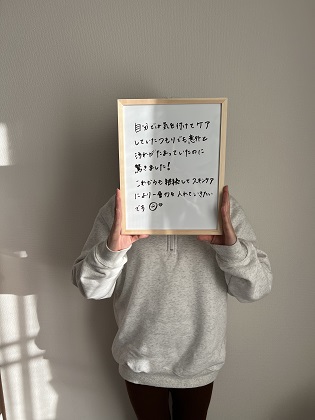 自分では気を付けてケア
していたつもりでも意外と
汚れがたまっていたのに
驚きました!
これからも継続してスキンケア
により一層力を入れていきたい
です